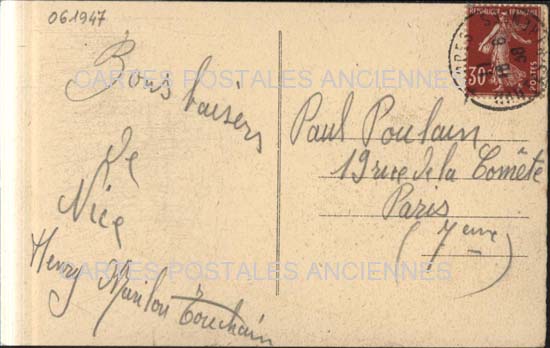 061947
Bons baisers
de
Nice
Henry Marilou Touchain
Paul Poulain
19 rue de la Comète
Paris
(7eme)
REPUBLIQUE FRANÇAISE
30c
POSTES
CARTES POSTALES ANCIENNES
CARTES POSTALES ANCIENNES